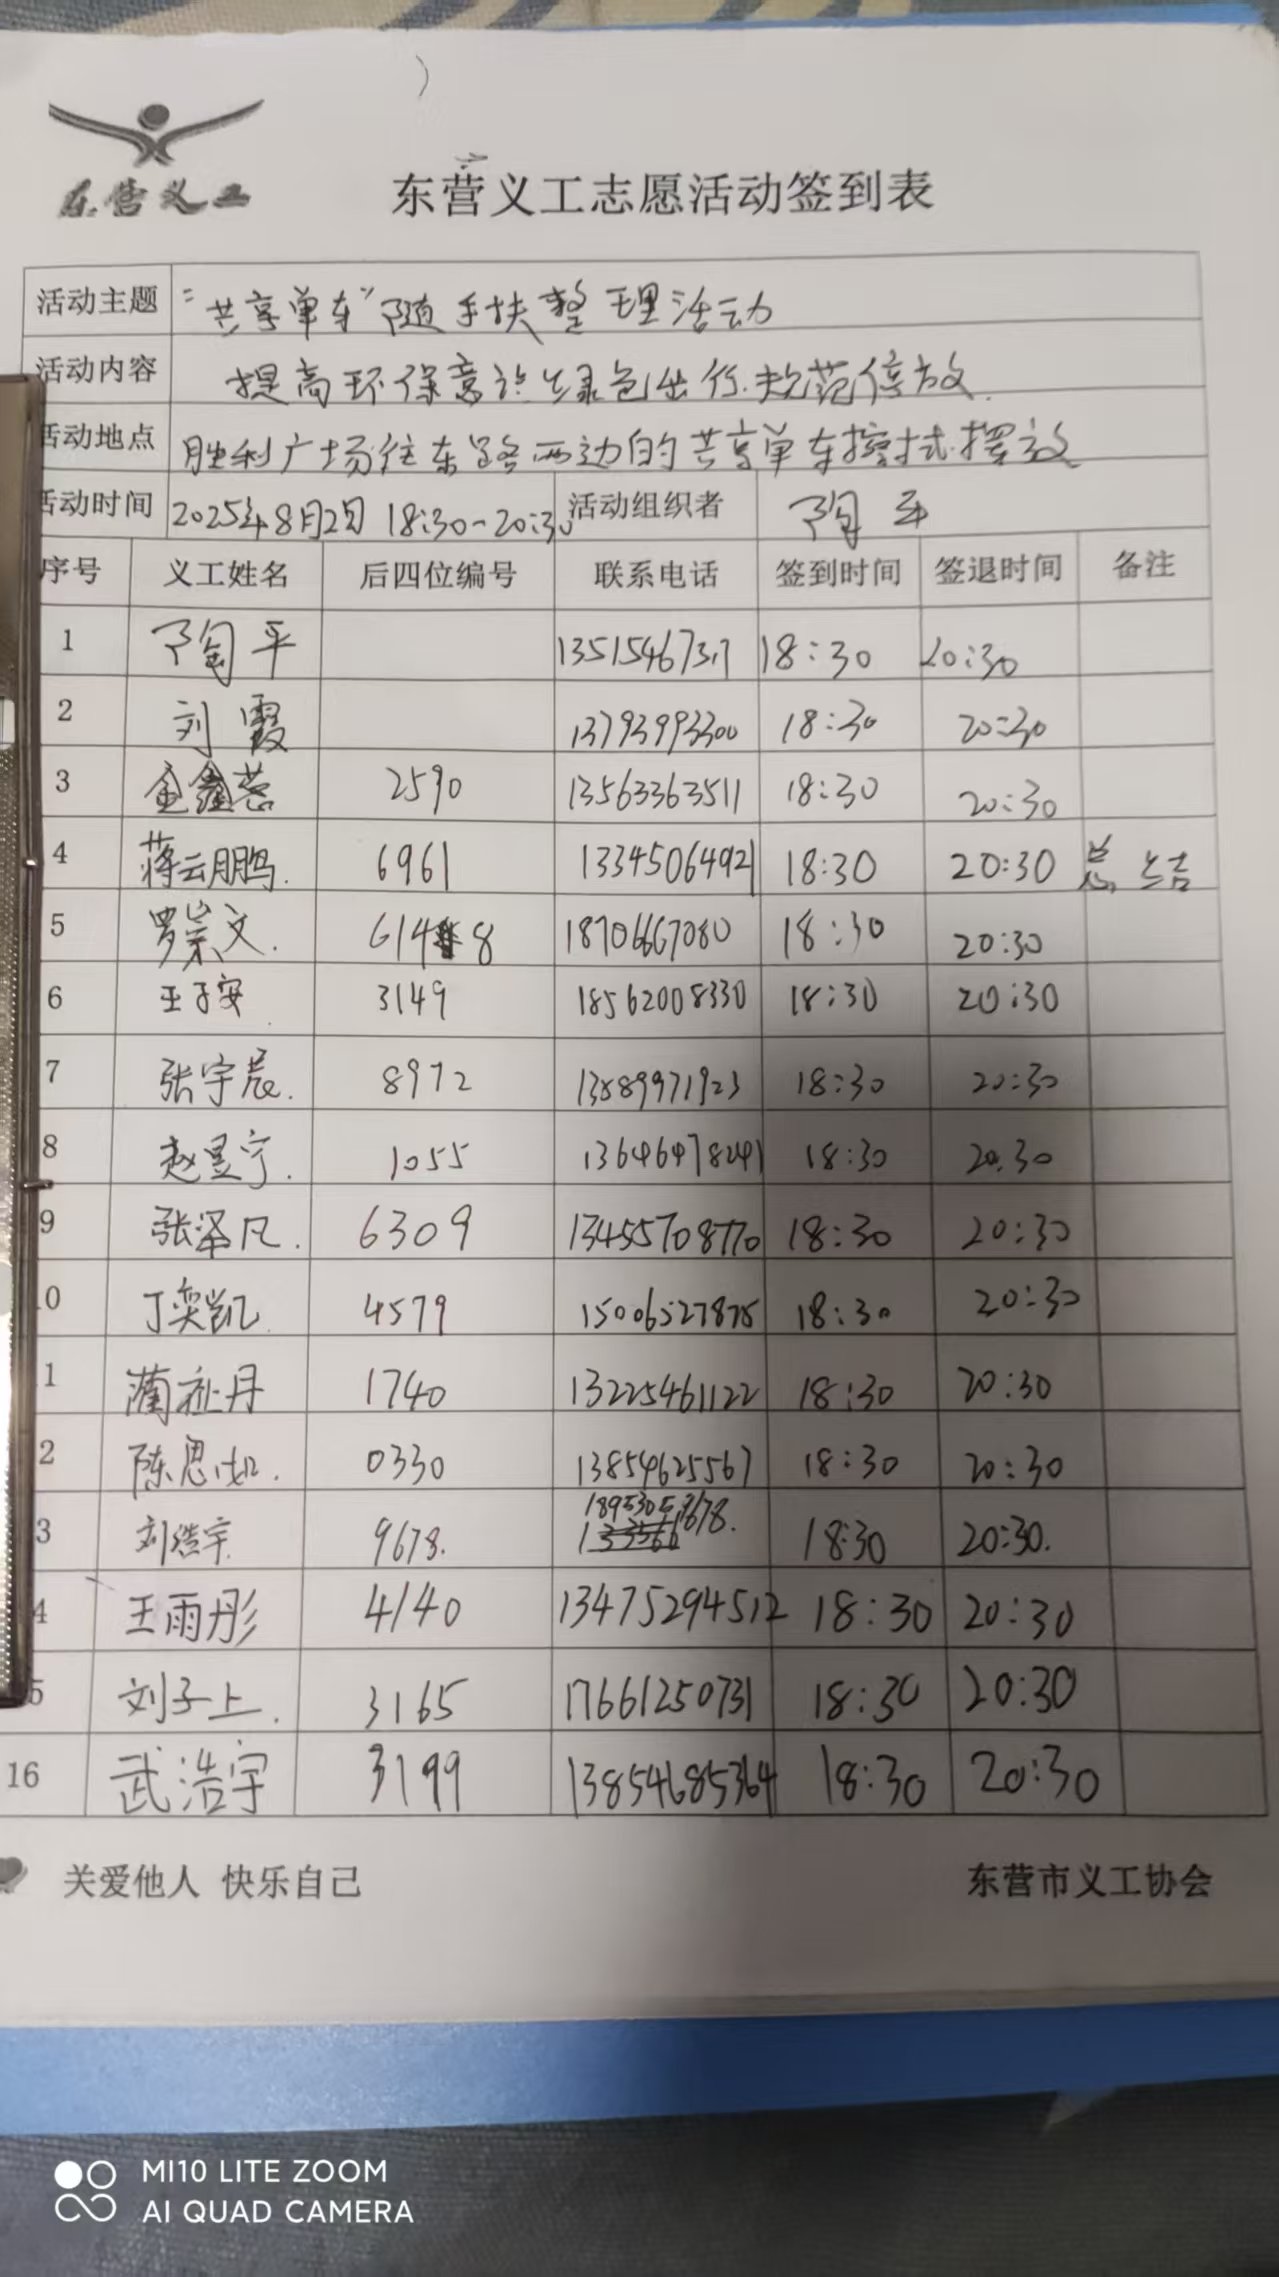 东营义工
东营义工志愿活动签到表
活动主题 "共享单车"随手扶整理活动
活动内容 提高环保意识绿色出行.规范停放.
活动地点 胜利广场往东路两边的共享单车擦拭.摆放
活动时间 2025年8月2日 18:30-20:30 活动组织者 陶平
序号 义工姓名 后四位编号 联系电话 签到时间 签退时间 备注
1 陶平 13515467317 18:30 20:30
2 刘霞 13793993300 18:30 20:30
3 金鑫 2590 13563363511 18:30 20:30
4 蒋云鹏. 6961 13345064921 18:30 20:30 总结
5 罗崇文. 6148 18706667080 18:30 20:30
6 王子安 3149 18562008330 18:30 20:30
7 张宇辰. 8972 13889971923 18:30 20:30
8 赵昱宁. 1055 13646478241 18:30 20:30
9 张泽凡. 6309 13455708770 18:30 20:30
10 丁奕凯 4579 15006527875 18:30 20:30
1 蔺祉丹 1740 13225461122 18:30 20:30
2 陈思如. 0330 13854625567 18:30 20:30
3 刘浩宇 9678. 18953059678. 18:30 20:30.
4 王雨彤 4140 13475294512 18:30 20:30
5 刘子上. 3165 17661250731 18:30 20:30
16 武浩宇 3199 13854685364 18:30 20:30
关爱他人 快乐自己 东营市义工协会
MI10 LITE ZOOM
AI QUAD CAMERA